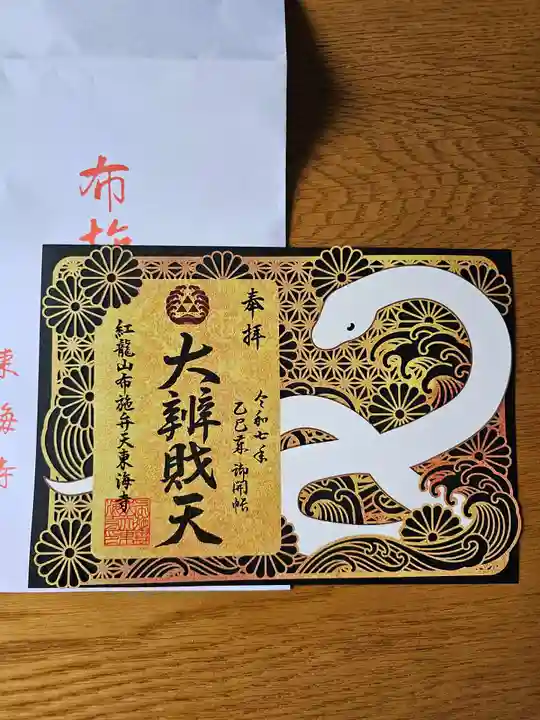 奉拝
大辨財天
令和七年
乙巳年 御開帳
紅龍山布施弁天東海寺
布施
東海寺